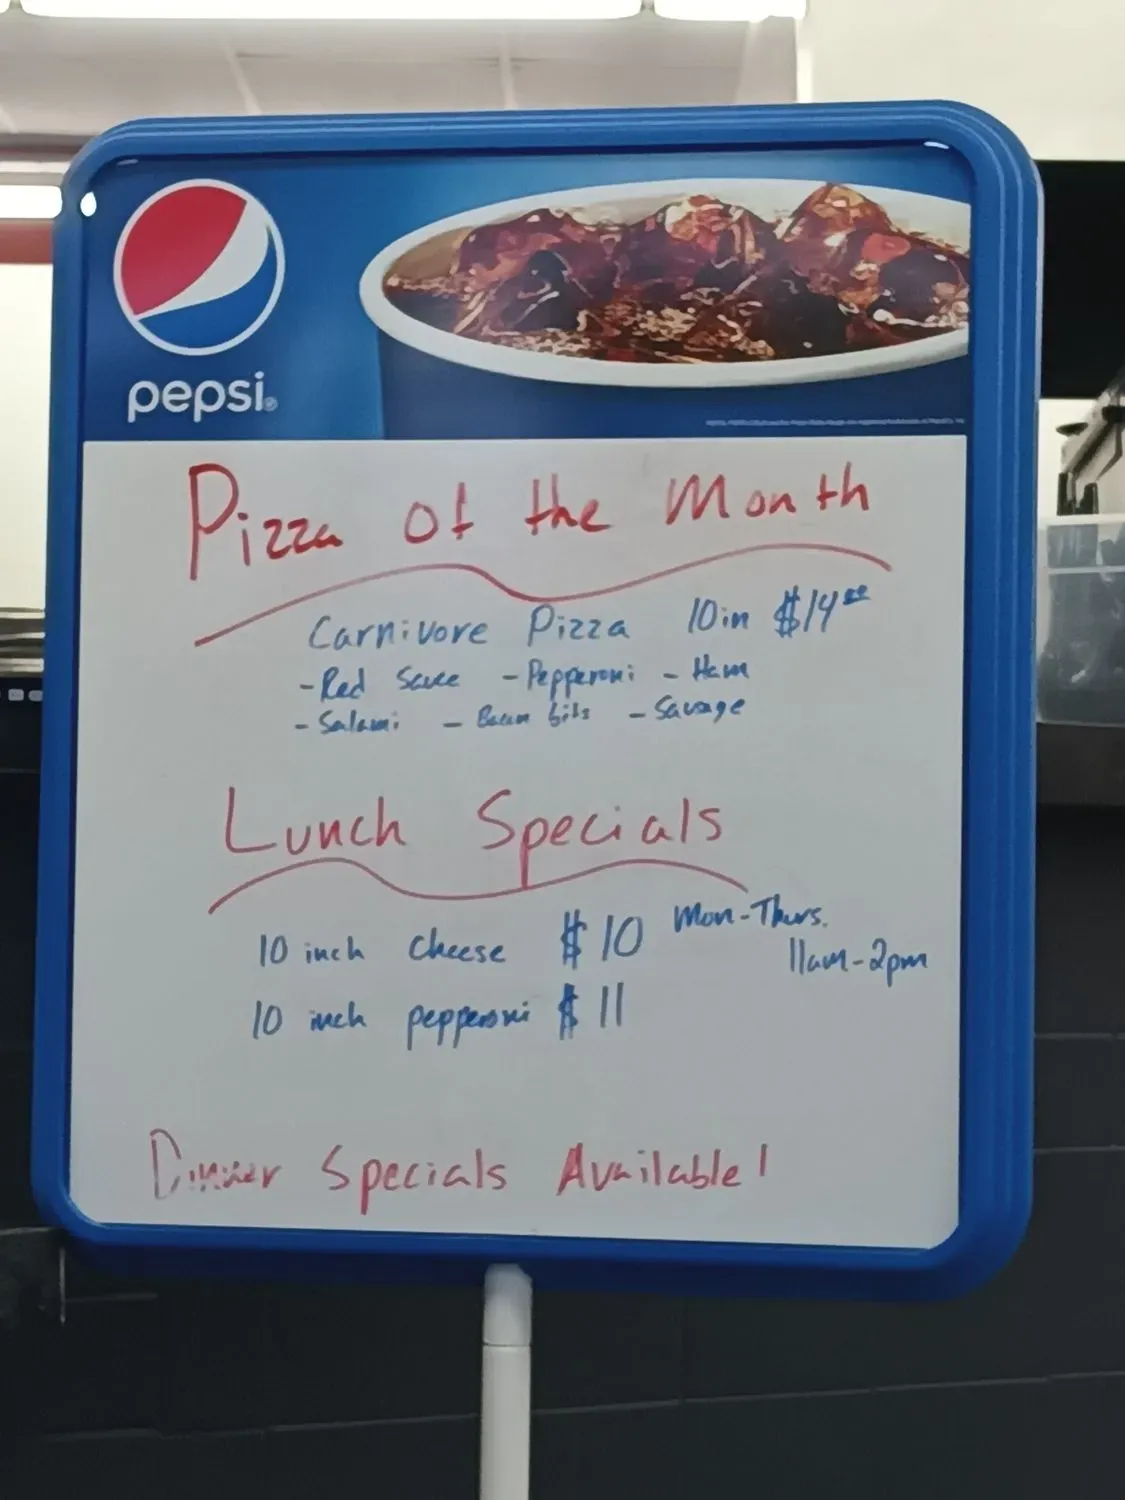 pepsi®
Pizza of the Month
Carnivore Pizza 10in $14⁰⁰
- Red Sauce - Pepperoni - Ham
- Salami - Bacon bits - Sausage
Lunch Specials
10 inch cheese $10 Mon-Thurs.
11am-2pm
10 inch pepperoni $11
Dinner Specials Available!